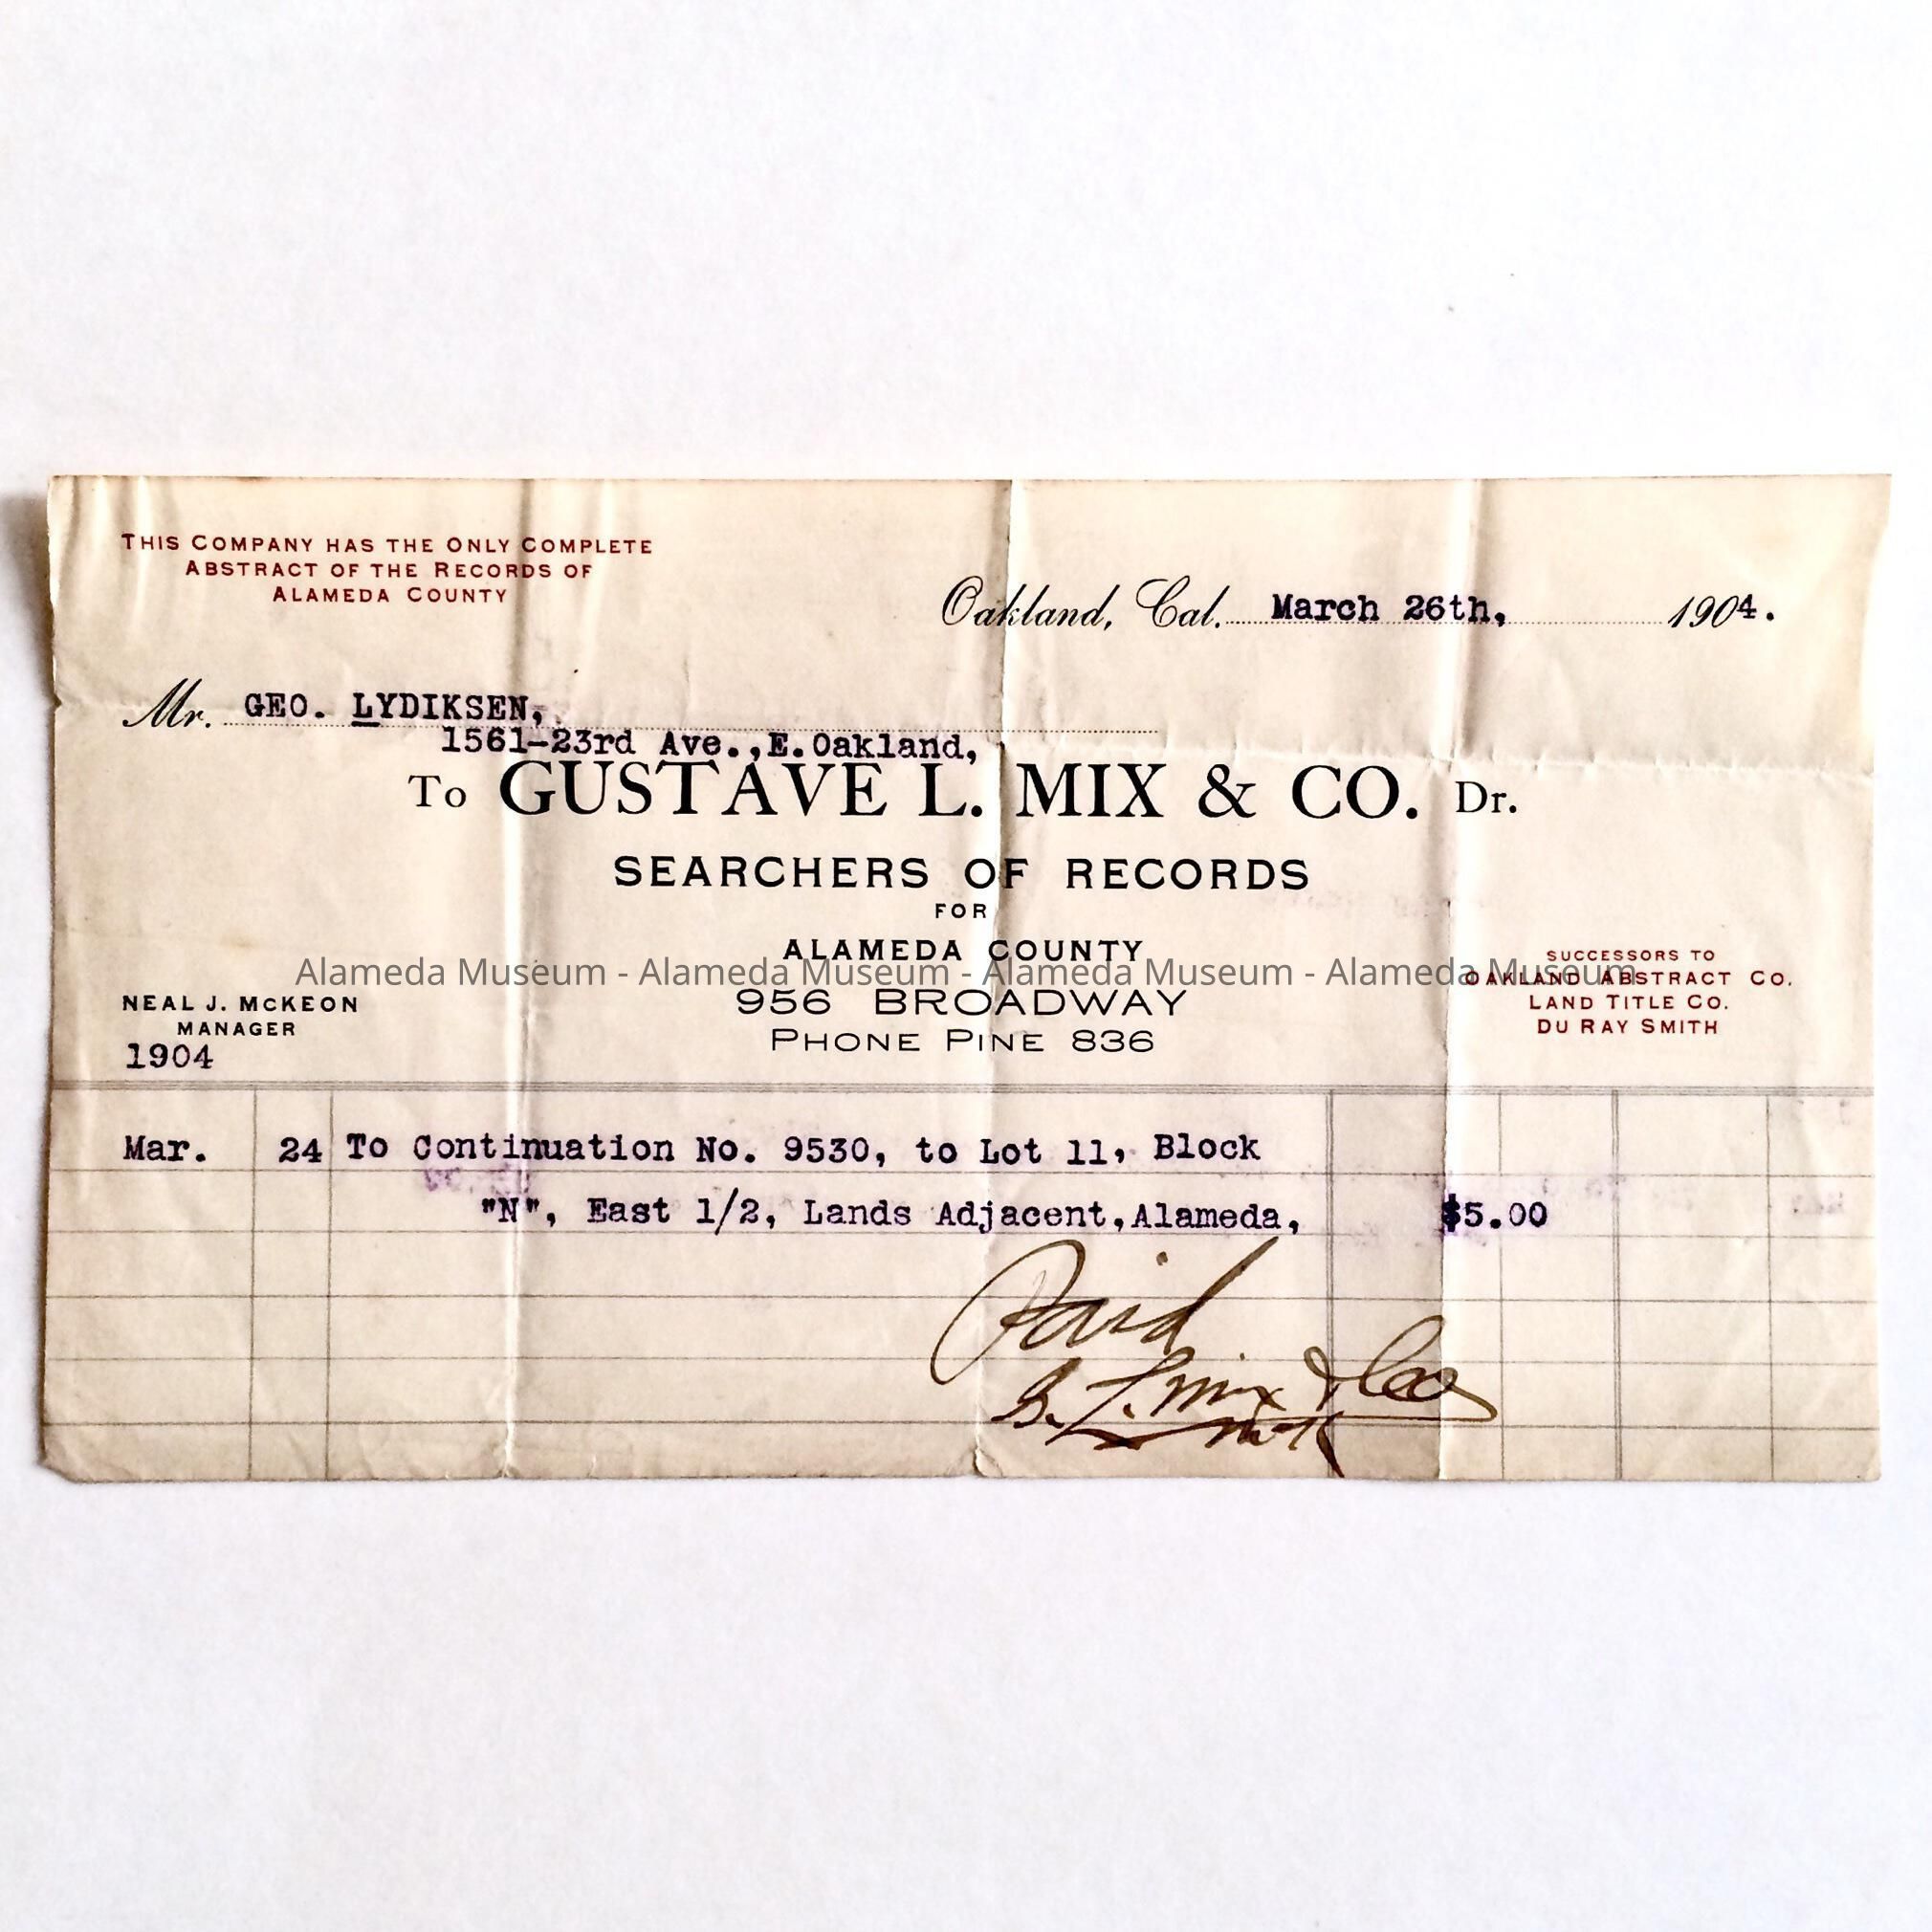 THIS COMPANY HAS THE ONLY COMPLETE
ABSTRACT OF THE RECORDS OF
ALAMEDA COUNTY
Oakland, Cal. March 26th, 1904.
Mr. GEO. LYDIKSEN,
1561-23rd Ave.,E.Oakland,
To GUSTAVE L. MIX & CO. Dr.
SEARCHERS OF RECORDS
FOR
ALAMEDA COUNTY
956 BROADWAY
PHONE PINE 836
NEAL J. MCKEON
MANAGER
1904
SUCCESSORS TO
OAKLAND ABSTRACT CO.
LAND TITLE CO.
DU RAY SMITH
Alameda Museum - Alameda Museum - Alameda Museum - Alameda Museum
Mar. 24 To Continuation No. 9530, to Lot 11, Block
"N", East 1/2, Lands Adjacent,Alameda, $5.00
Paid
G. L. Mix & Co